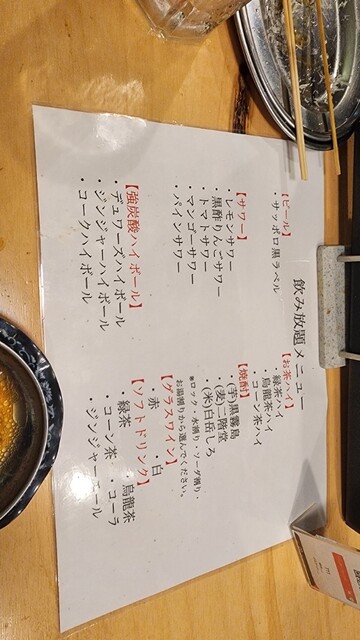 飲み放題メニュー
【ビール】
・サッポロ黒ラベル
【サワー】
・レモンサワー
・黒酢りんごサワー
・トマトサワー
・マンゴーサワー
・パインサワー
【強炭酸ハイボール】
・デュワーズハイボール
・ジンジャーハイボール
・コークハイボール
【お茶ハイ】
・緑茶ハイ
・烏龍茶ハイ
・コーン茶ハイ
【焼酎】
・(芋)黒霧島
・(麦)二階堂
・(米)白岳しろ
※ロック・水割り・ソーダ割り・
お湯割りから選んでください。
【グラスワイン】
・赤 ・白
【ソフトドリンク】
・緑茶 ・烏龍茶
・コーン茶 ・コーラ
・ジンジャーエール